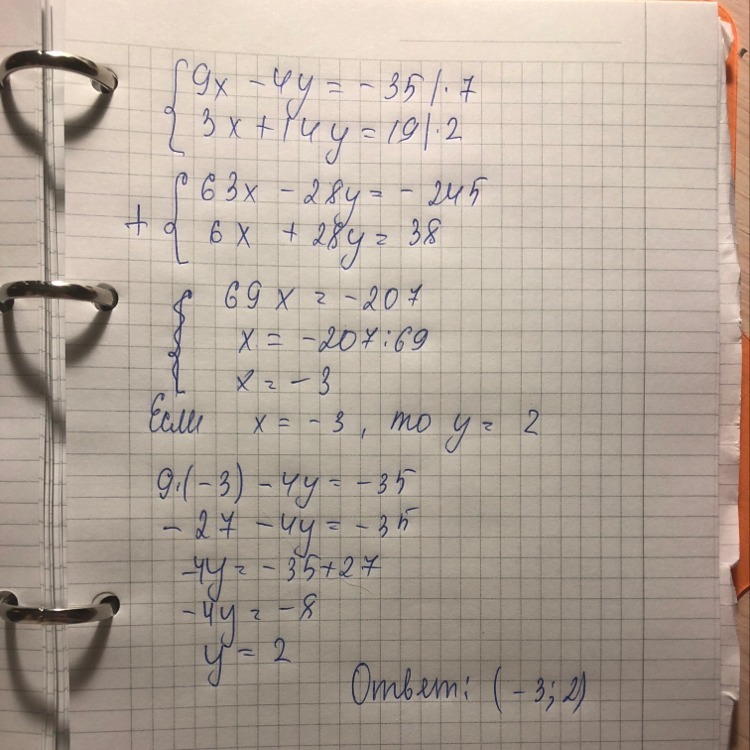 { 9x - 4y = - 35 | · 7
3x + 14y = 19 | · 2
+ { 63x - 28y = - 245
6x + 28y = 38
{ 69x = -207
x = -207:69
x = -3
Если x = -3, то y = 2
9·(-3) - 4y = -35
-27 - 4y = -35
-4y = -35+27
-4y = -8
y = 2
Ответ: (-3; 2)